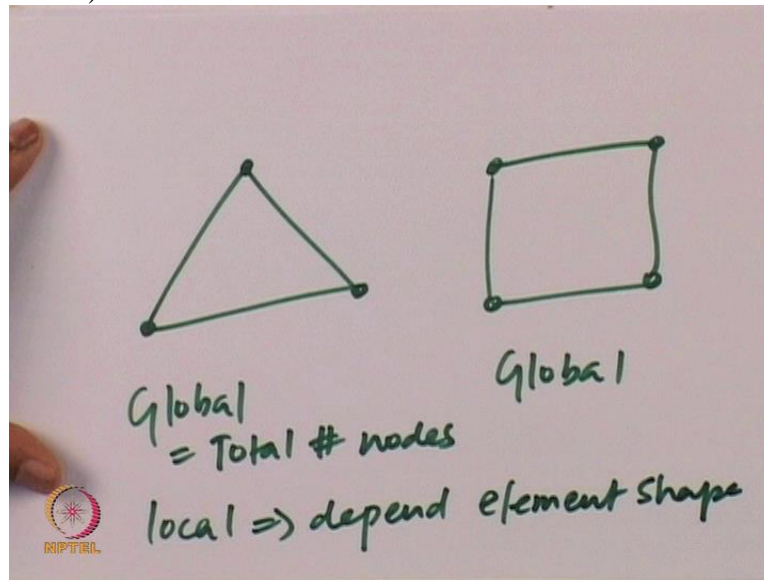 Global
= Total # nodes
Global
local => depend element shape
NPTEL